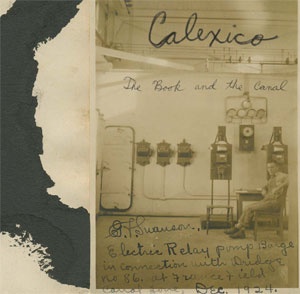 Calexico
The Book and the Canal
Swanson,
Electric Relay pump Barge
in connection with Dredge
no 86, at
Canal Zone, Dec. 1924.